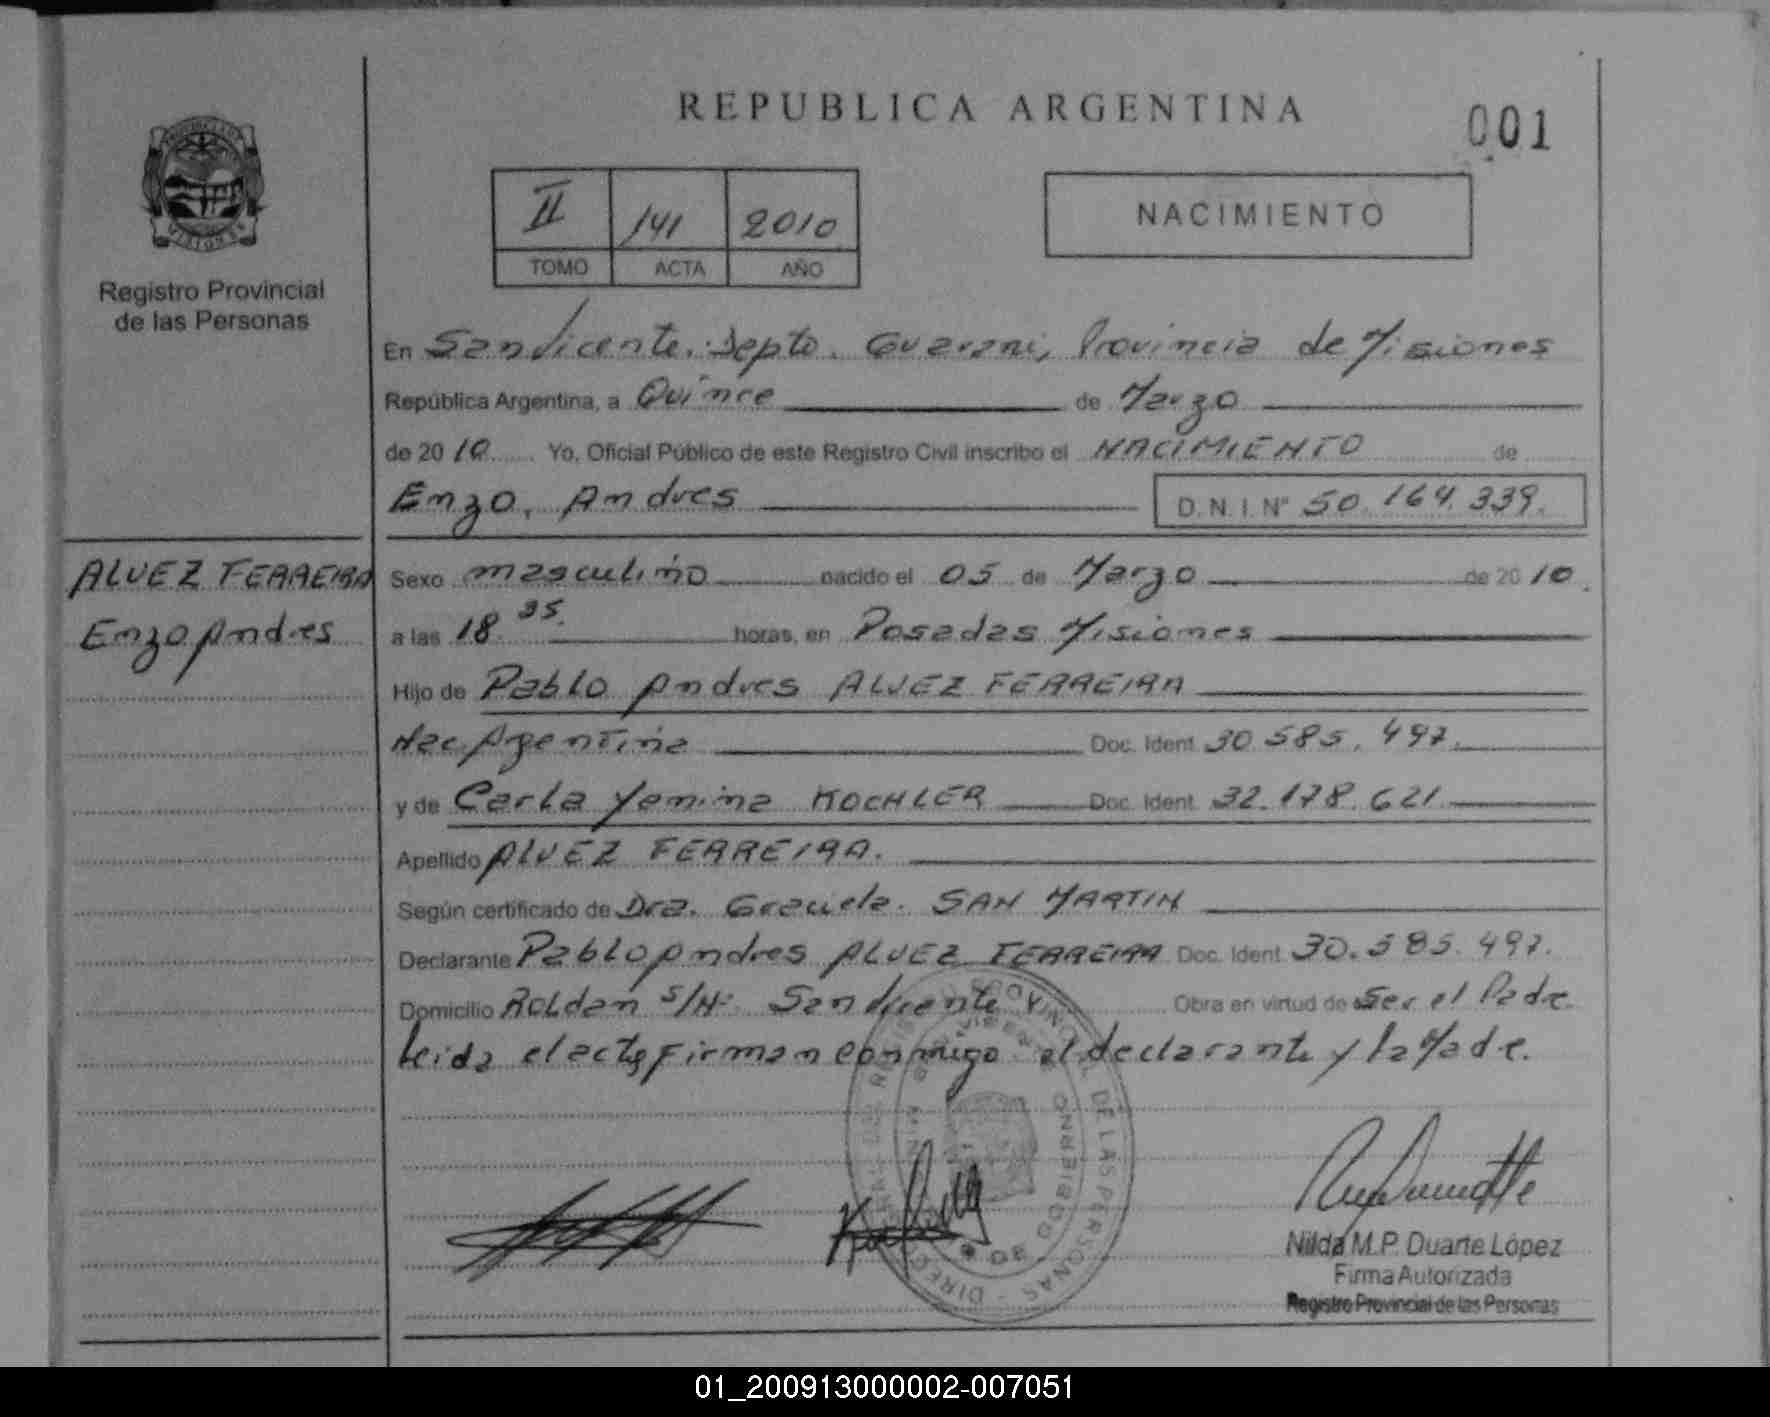 REPUBLICA ARGENTINA
001
PROVINCIA DE
MISIONES
Registro Provincial
de las Personas
II 141 2010
TOMO ACTA AÑO
NACIMIENTO
En San Vicente, Depto. Guarani, Provincia de Misiones
República Argentina, a Quince de Marzo
de 2010 Yo, Oficial Público de este Registro Civil inscribo el NACIMIENTO de
Enzo, Andres D.N.I. Nº 50.164.339.
ALVEZ FERREIRA
Enzo Andres
Sexo masculino nacido el 05 de Marzo de 2010.
a las 18.35. horas, en Posadas Misiones
Hijo de Pablo Andres ALVEZ FERREIRA
Nac. Argentina Doc. Ident. 30.585.497.
y de Carla Yanina KOCHLER Doc. Ident. 32.178.621
Apellido ALVEZ FERREIRA.
Según certificado de Dra. Graciela. SAN MARTIN
Declarante Pablo Andres ALVEZ FERREIRA Doc. Ident. 30.585.497.
Domicilio ROLdan S/Nº San Vicente Obra en virtud de Ser el Padre
Leida el acta, firman conmigo el declarante y la Madre.
DE LAS PERSONAS
GOBIERNO DE
Nilda M.P. Duarte López
Firma Autorizada
Registro Provincial de las Personas
01_200913000002-007051